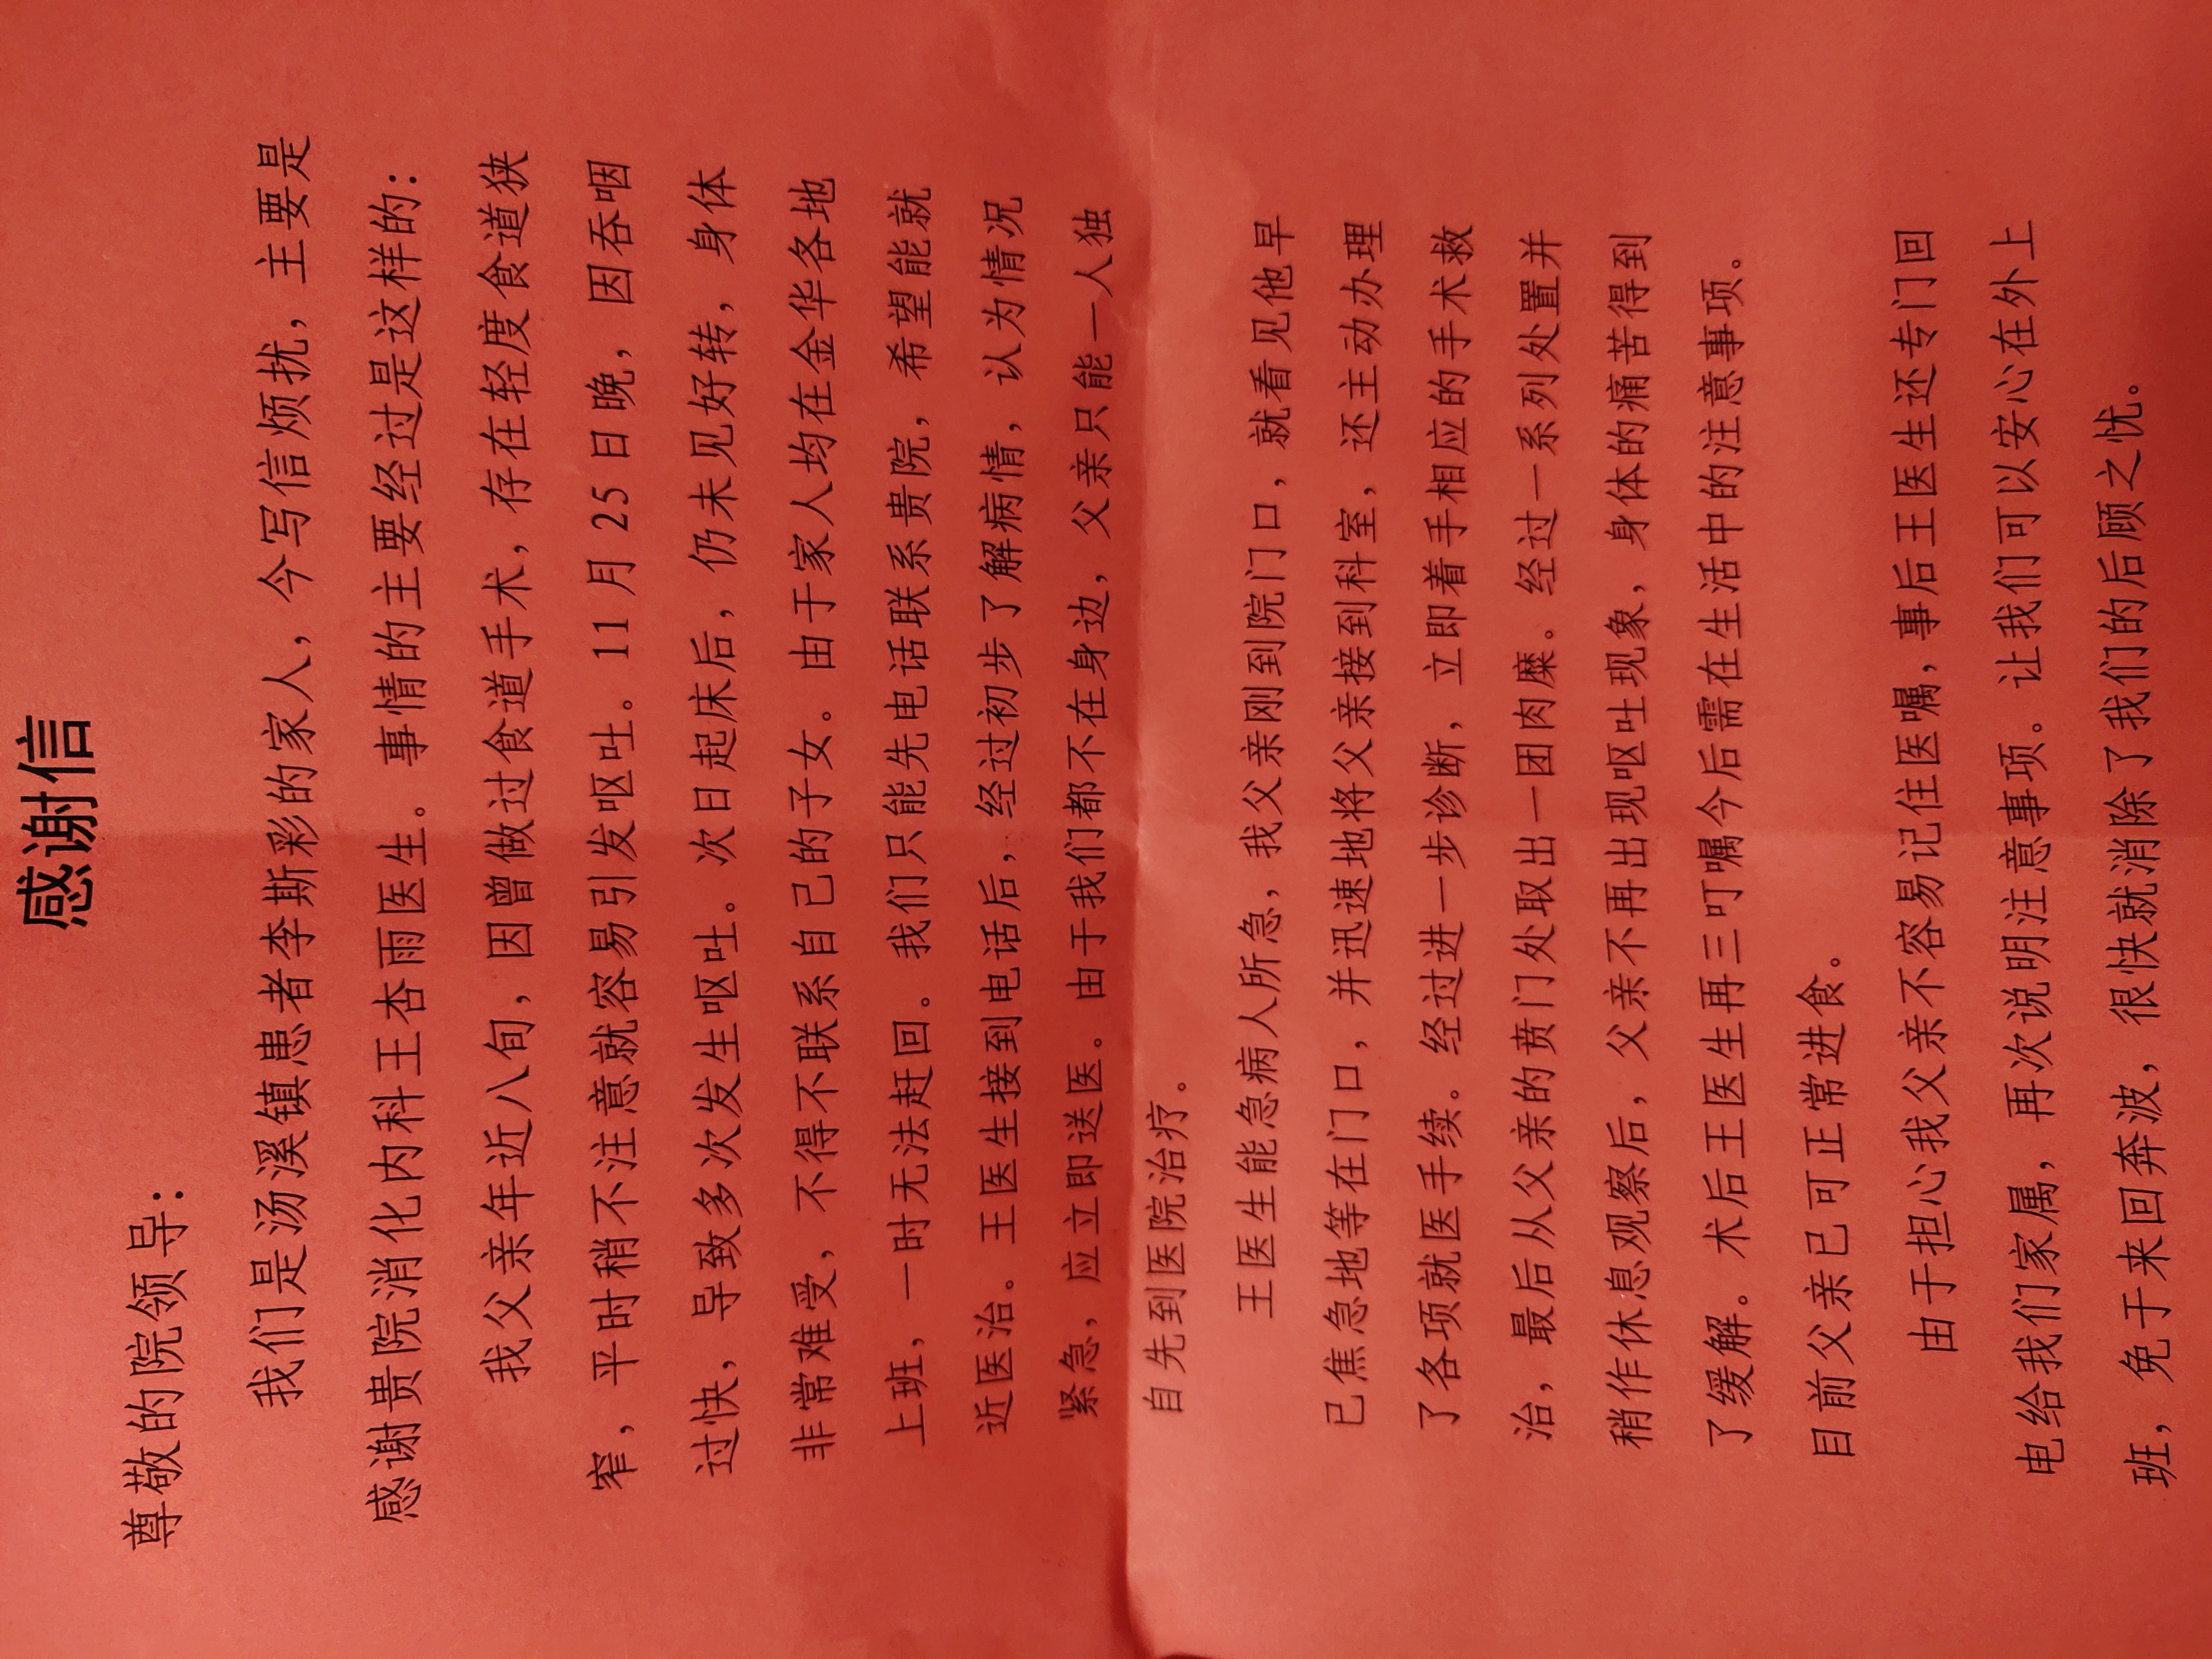 感谢信
尊敬的院领导：
我们是汤溪镇患者李斯彩的家人，今写信烦扰，主要是
感谢贵院消化内科王杏雨医生。事情的主要经过是这样的：
我父亲年近八旬，因曾做过食道手术，存在轻度食道狭
窄，平时稍不注意就容易引发呕吐。11 月 25 日晚，因吞咽
过快，导致多次发生呕吐。次日起床后，仍未见好转，身体
非常难受，不得不联系自己的子女。由于家人均在金华各地
上班，一时无法赶回。我们只能先电话联系贵院，希望能就
近医治。王医生接到电话后，经过初步了解病情，认为情况
紧急，应立即送医。由于我们都不在身边，父亲只能一人独
自先到医院治疗。
王医生能急病人所急，我父亲刚到院门口，就看见他早
已焦急地等在门口，并迅速地将父亲接到科室，还主动办理
了各项就医手续。经过进一步诊断，立即着手相应的手术救
治，最后从父亲的贲门处取出一团肉糜。经过一系列处置并
稍作休息观察后，父亲不再出现呕吐现象，身体的痛苦得到
了缓解。术后王医生再三叮嘱今后需在生活中的注意事项。
目前父亲已可正常进食。
由于担心我父亲不容易记住医嘱，事后王医生还专门回
电给我们家属，再次说明注意事项。让我们可以安心在外上
班，免于来回奔波，很快就消除了我们的后顾之忧。